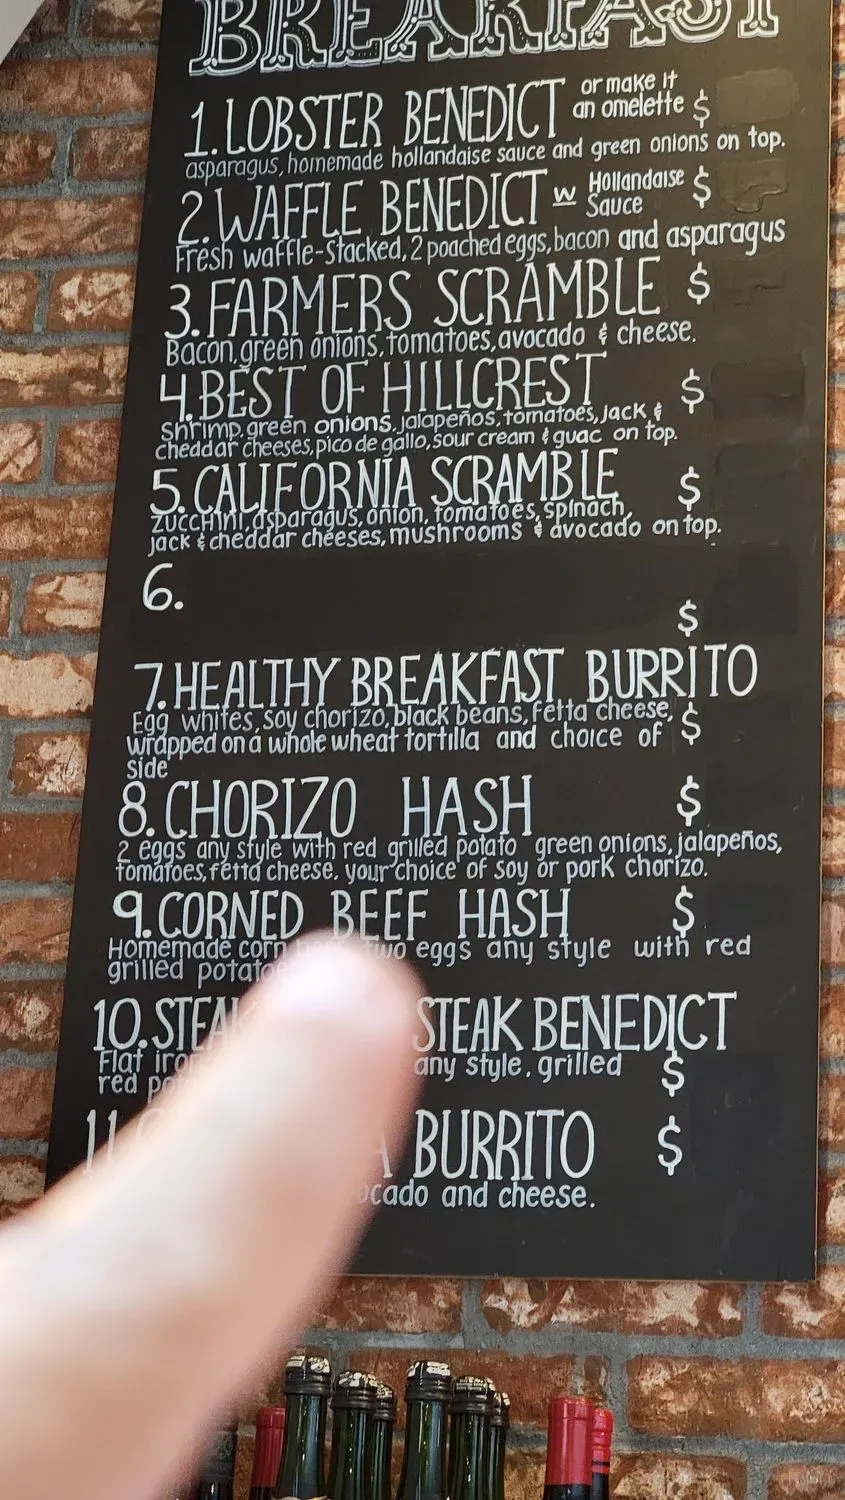 BREAKFAST
1. LOBSTER BENEDICT or make it an omelette $
asparagus, homemade hollandaise sauce and green onions on top.
2. WAFFLE BENEDICT w Hollandaise Sauce $
Fresh waffle-Stacked, 2 poached eggs, bacon and asparagus
3. FARMERS SCRAMBLE $
Bacon, green onions, tomatoes, avocado & cheese.
4. BEST OF HILLCREST $
Shrimp, green onions, jalapeños, tomatoes, jack &
cheddar cheeses, pico de gallo, sour cream & guac on top.
5. CALIFORNIA SCRAMBLE $
zucchini, asparagus, onion, tomatoes, spinach,
jack & cheddar cheeses, mushrooms & avocado on top.
6.
$
7. HEALTHY BREAKFAST BURRITO
Egg whites, soy chorizo, black beans, fetta cheese, $
wrapped on a whole wheat tortilla and choice of
side
8. CHORIZO HASH $
2 eggs any style with red grilled potato green onions, jalapeños,
tomatoes, fetta cheese. your choice of soy or pork chorizo.
9. CORNED BEEF HASH $
Homemade corn two eggs any style with red
grilled
10. STEAK BENEDICT
Flat any style, grilled $
red
11. BURRITO $
and cheese.